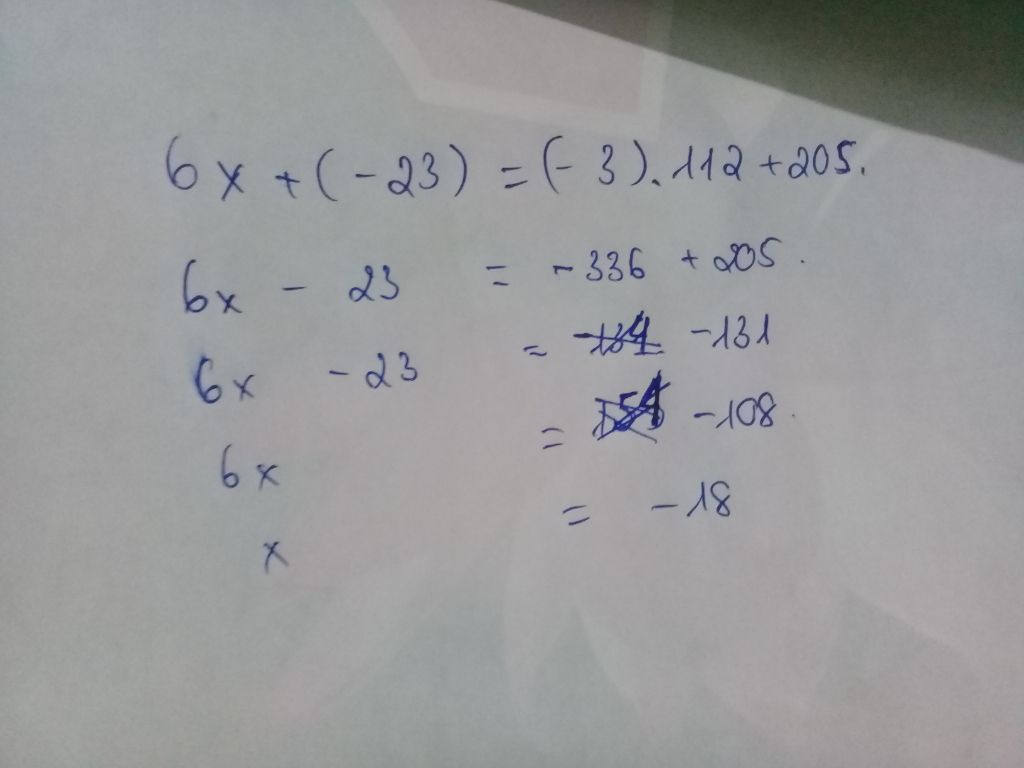 6x + (-23) = (-3). 112 + 205.
6x - 23 = -336 + 205.
6x - 23 = -131
6x = -108.
x = -18